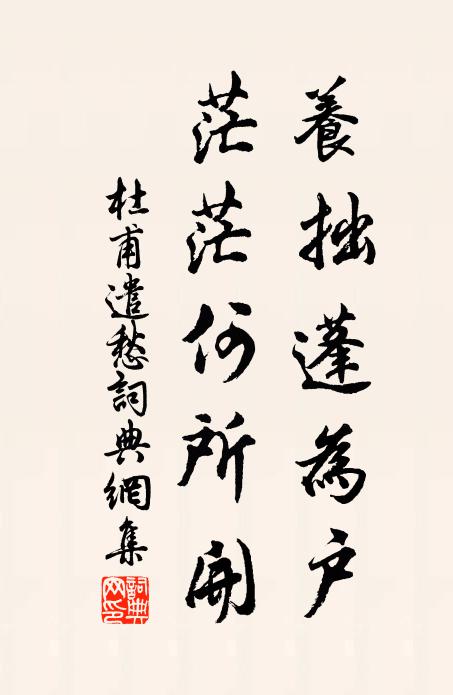 養拙蓬為戶
茫茫何所開
杜甫遣愁詞典網集
詞典
网印